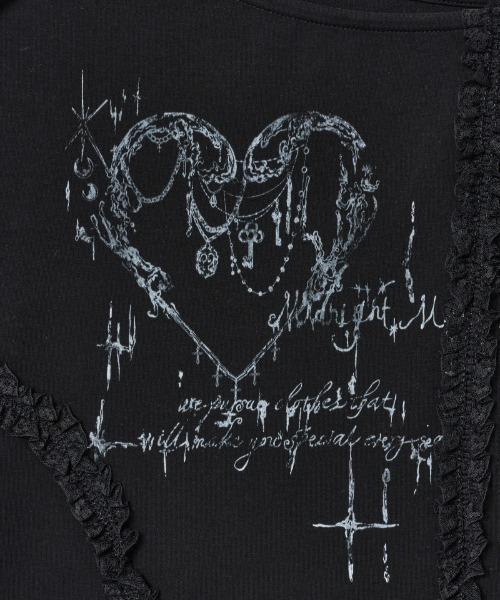 Midnight M
we pu our clothes that
will make you special every